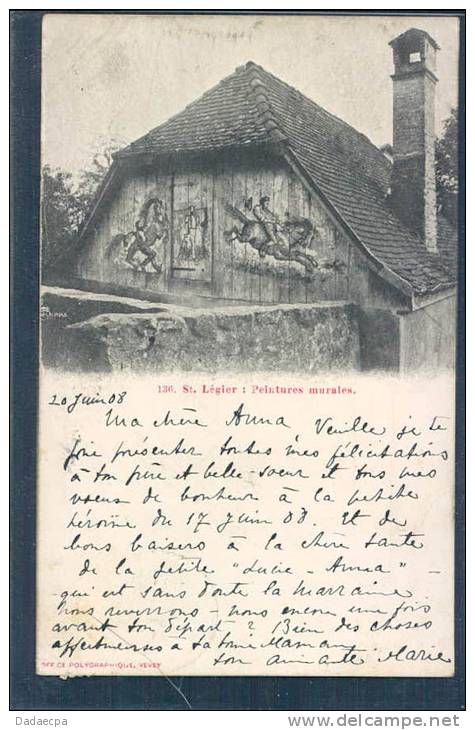 136. St. Légier : Peintures murales.
20 Juin 08
Ma chère Anna, Veuille je te
prie présenter toutes mes félicitations
à ton père et belle-soeur et tous mes
voeux de bonheur à la petite
héroïne du 17 Juin 08. Et de
bons baisers à la chère tante
de la petite "Lucie-Anna" -
- qui est sans doute la marraine
nous reverrons-nous encore une fois
avant ton départ? Bien des choses
affectueuses à ta bonne Maman
ton aimante Marie
OFFICE POLYGRAPHIQUE, VEVEY
Dadaecpa
http://www.delcampe.net